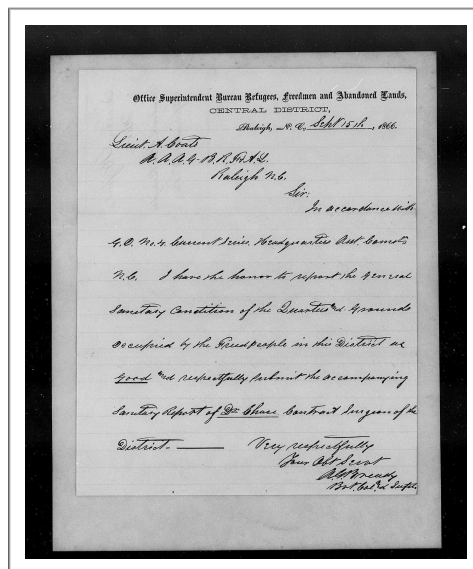 Office Superintendent Bureau Refugees, Freedmen and Abandoned Lands,
CENTRAL DISTRICT,
Raleigh, N. C., Sept 15th, 1866.
Lieut. A. Coats
A. A. A. G. B. R. F. & A. L.
Raleigh N.C.
Sir:
In accordance with
G.O. No. 4 Current Series, Headquarters Asst Comr
N.C. I have the honor to report the General
Sanitary Condition of the Quarters and Grounds
occupied by the Freedpeople in this District as
good and respectfully submit the accompanying
Sanitary Report of Dr Chase Contract Surgeon of the
District. Very respectfully
Your Obt Servt
Bvt. Col. & Supt.